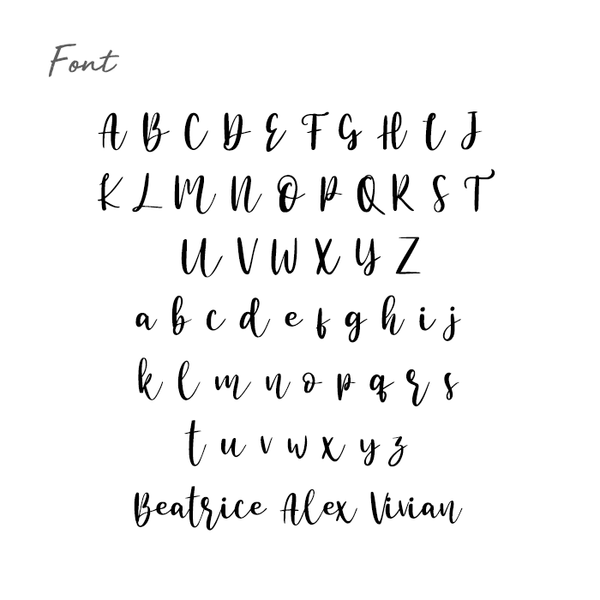 Font
A B C D E F G H I J
K L M N O P Q R S T
U V W X Y Z
a b c d e f g h i j
k l m n o p q r s
t u v w x y z
Beatrice Alex Vivian